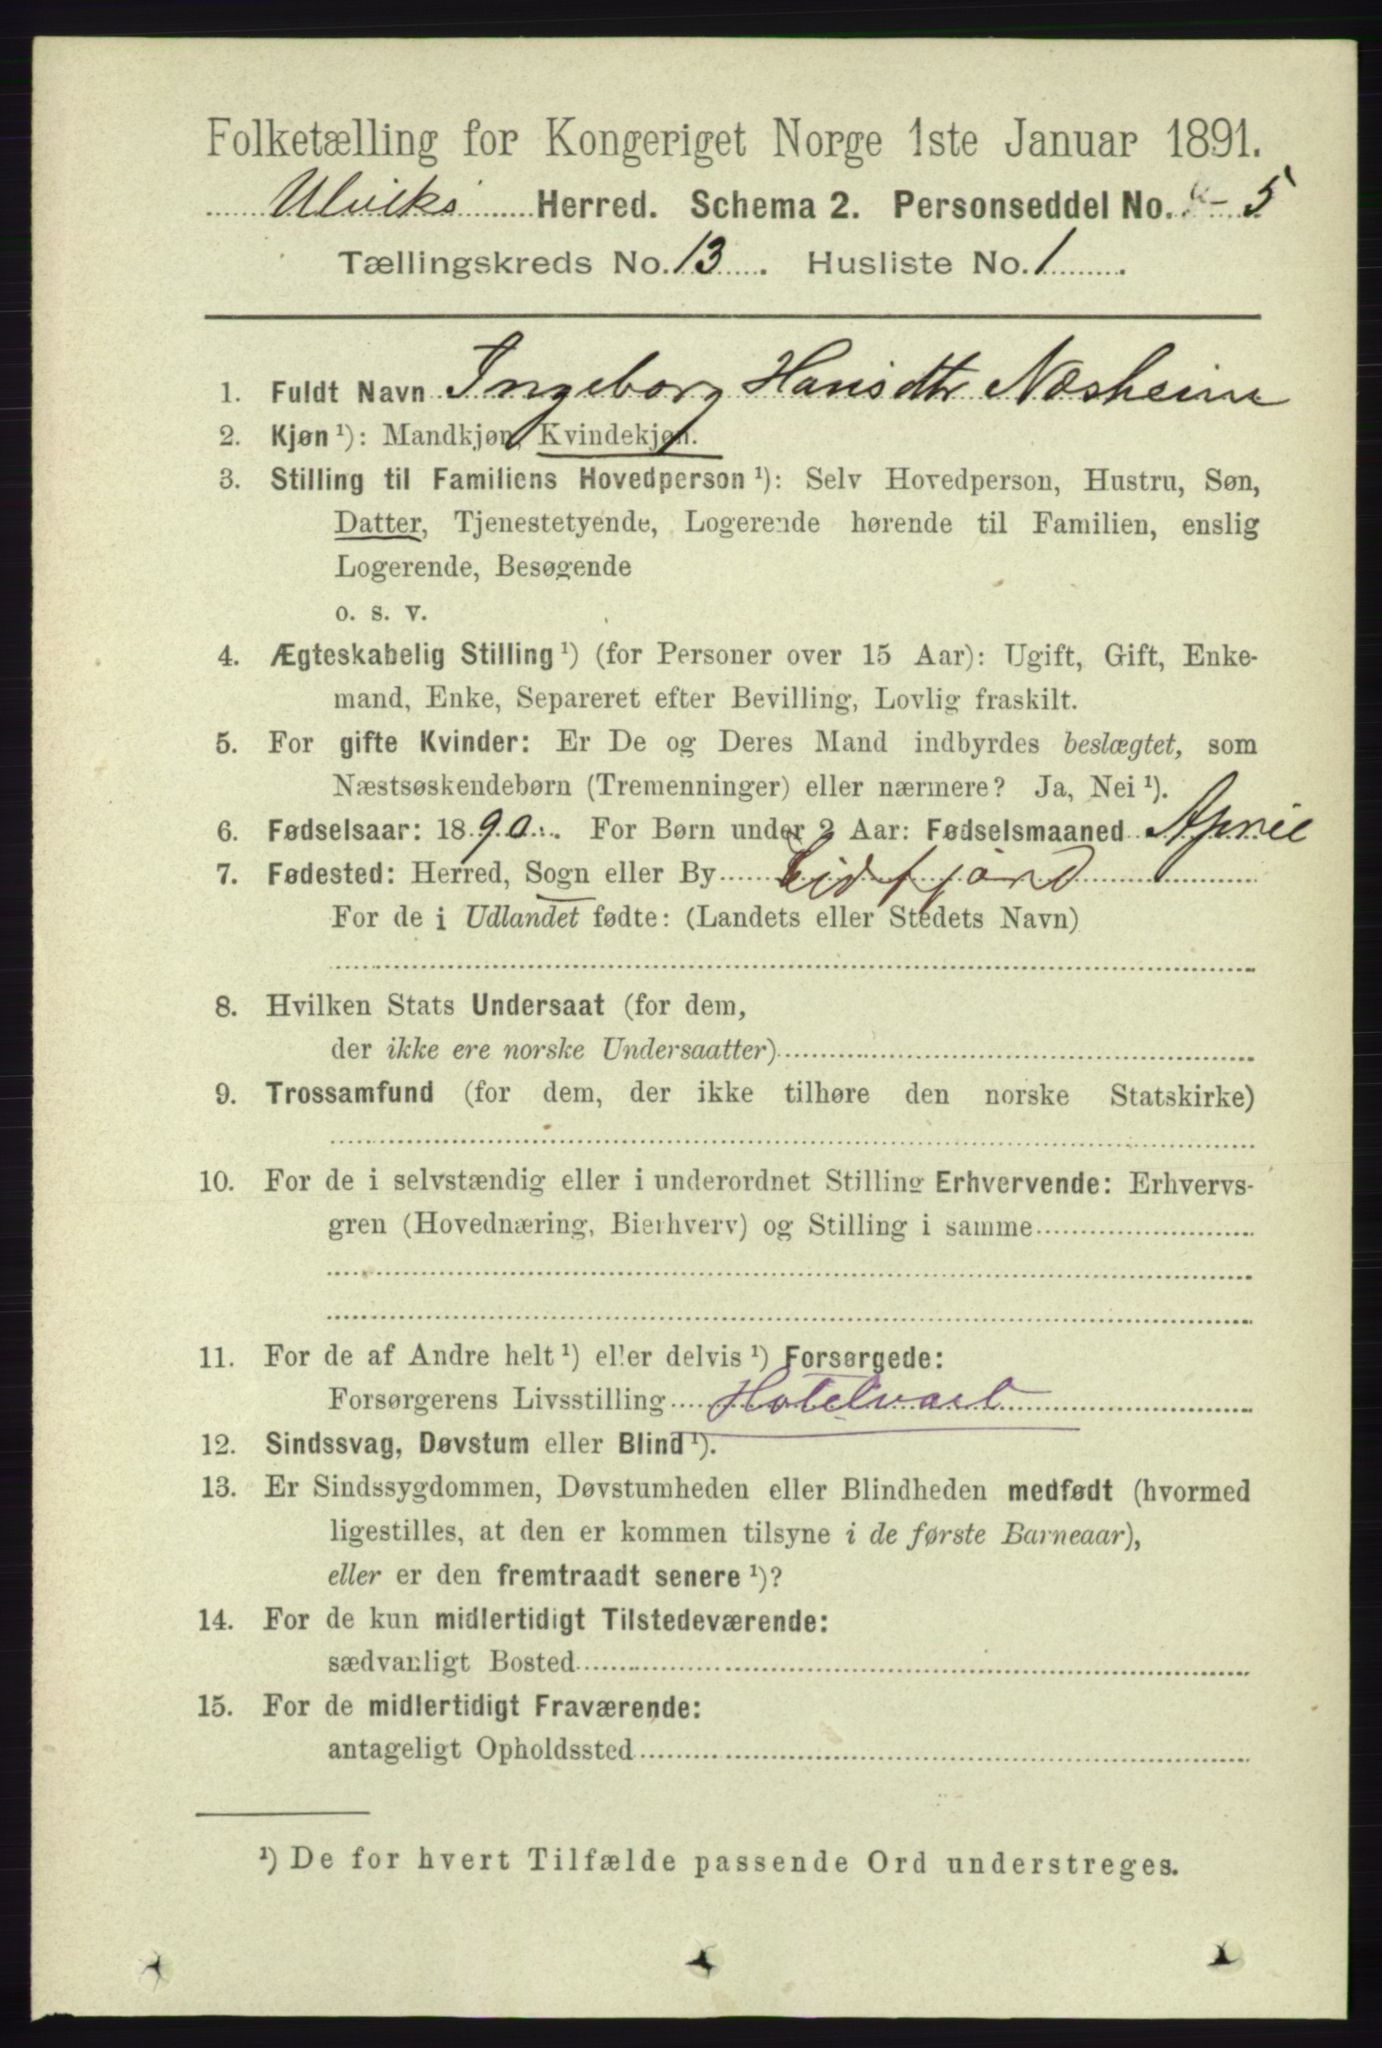 Folketælling for Kongeriget Norge 1ste Januar 1891.
Ulviks Herred. Schema 2. Personseddel No. 5
Tællingskreds No. 13. Husliste No. 1.
1. Fuldt Navn Ingeborg Hansdtr Næsheim
2. Kjøn ¹): Mandkjøn, Kvindekjøn.
3. Stilling til Familiens Hovedperson ¹): Selv Hovedperson, Hustru, Søn,
Datter, Tjenestetyende, Logerende hørende til Familien, enslig
Logerende, Besøgende
o. s. v.
4. Ægteskabelig Stilling ¹) (for Personer over 15 Aar): Ugift, Gift, Enke-
mand, Enke, Separeret efter Bevilling, Lovlig fraskilt.
5. For gifte Kvinder: Er De og Deres Mand indbyrdes beslægtet, som
Næstsøskendebørn (Tremenninger) eller nærmere? Ja, Nei ¹).
6. Fødselsaar: 1890. For Børn under 2 Aar: Fødselsmaaned April
7. Fødested: Herred, Sogn eller By Eidfjord
For de i Udlandet fødte: (Landets eller Stedets Navn)
8. Hvilken Stats Undersaat (for dem,
der ikke ere norske Undersaatter)
9. Trossamfund (for dem, der ikke tilhøre den norske Statskirke)
10. For de i selvstændig eller i underordnet Stilling Erhvervende: Erhvervs-
gren (Hovednæring, Bierhverv) og Stilling i samme
11. For de af Andre helt ¹) eller delvis ¹) Forsørgede:
Forsørgerens Livsstilling Hotelvært
12. Sindssvag, Døvstum eller Blind ¹).
13. Er Sindssygdommen, Døvstumheden eller Blindheden medfødt (hvormed
ligestilles, at den er kommen tilsyne i de første Barneaar),
eller er den fremtraadt senere ¹)?
14. For de kun midlertidigt Tilstedeværende:
sædvanligt Bosted
15. For de midlertidigt Fraværende:
antageligt Opholdssted
¹) De for hvert Tilfælde passende Ord understreges.